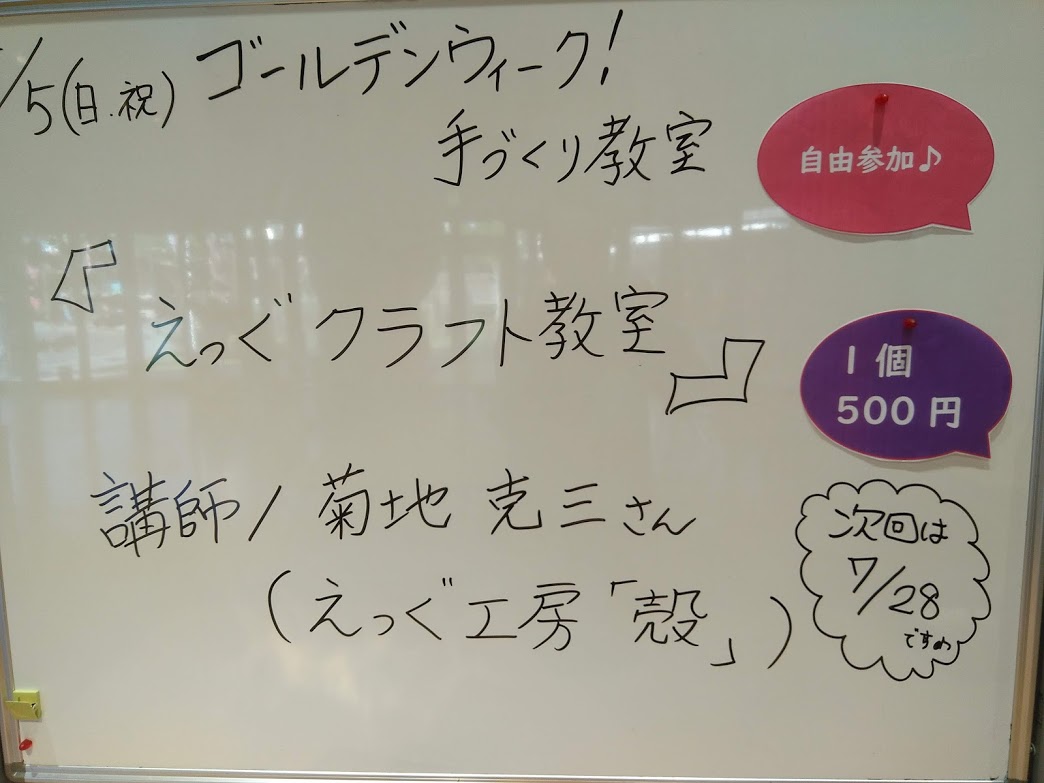 /5(日.祝) ゴールデンウィーク!
手づくり教室
自由参加♪
『えっぐクラフト教室』
1個
500円
講師/菊地 克三さん
(えっぐ工房「殻」)
次回は
7/28
です。